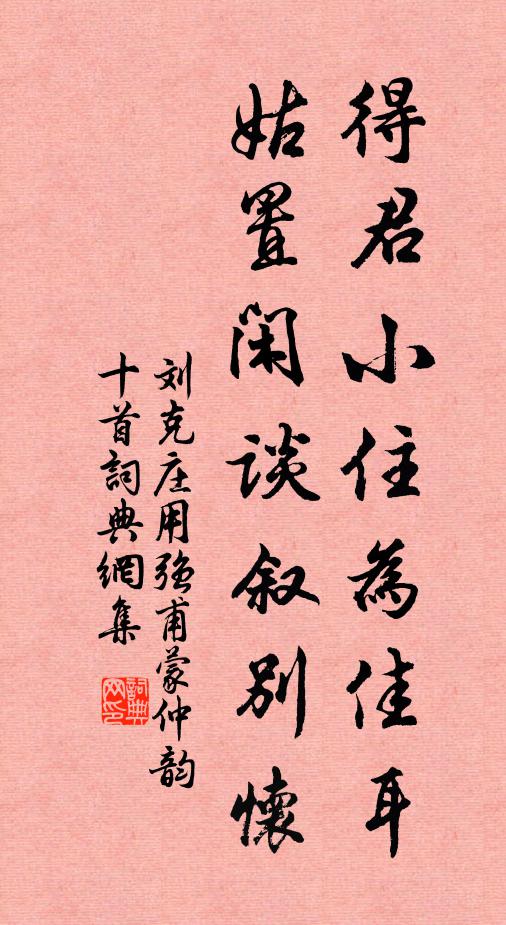 得君小住為佳耳
姑置閑談叙别懷
刘克庄用强甫蒙仲韵
十首詞典網集
詞典網印